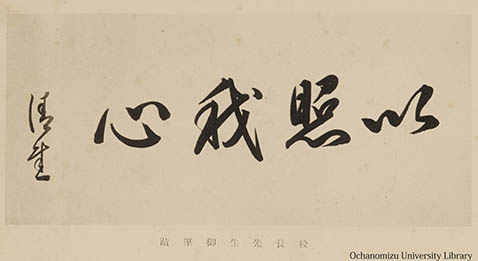 以照我心
清
校長先生御筆蹟
Ochanomizu University Library